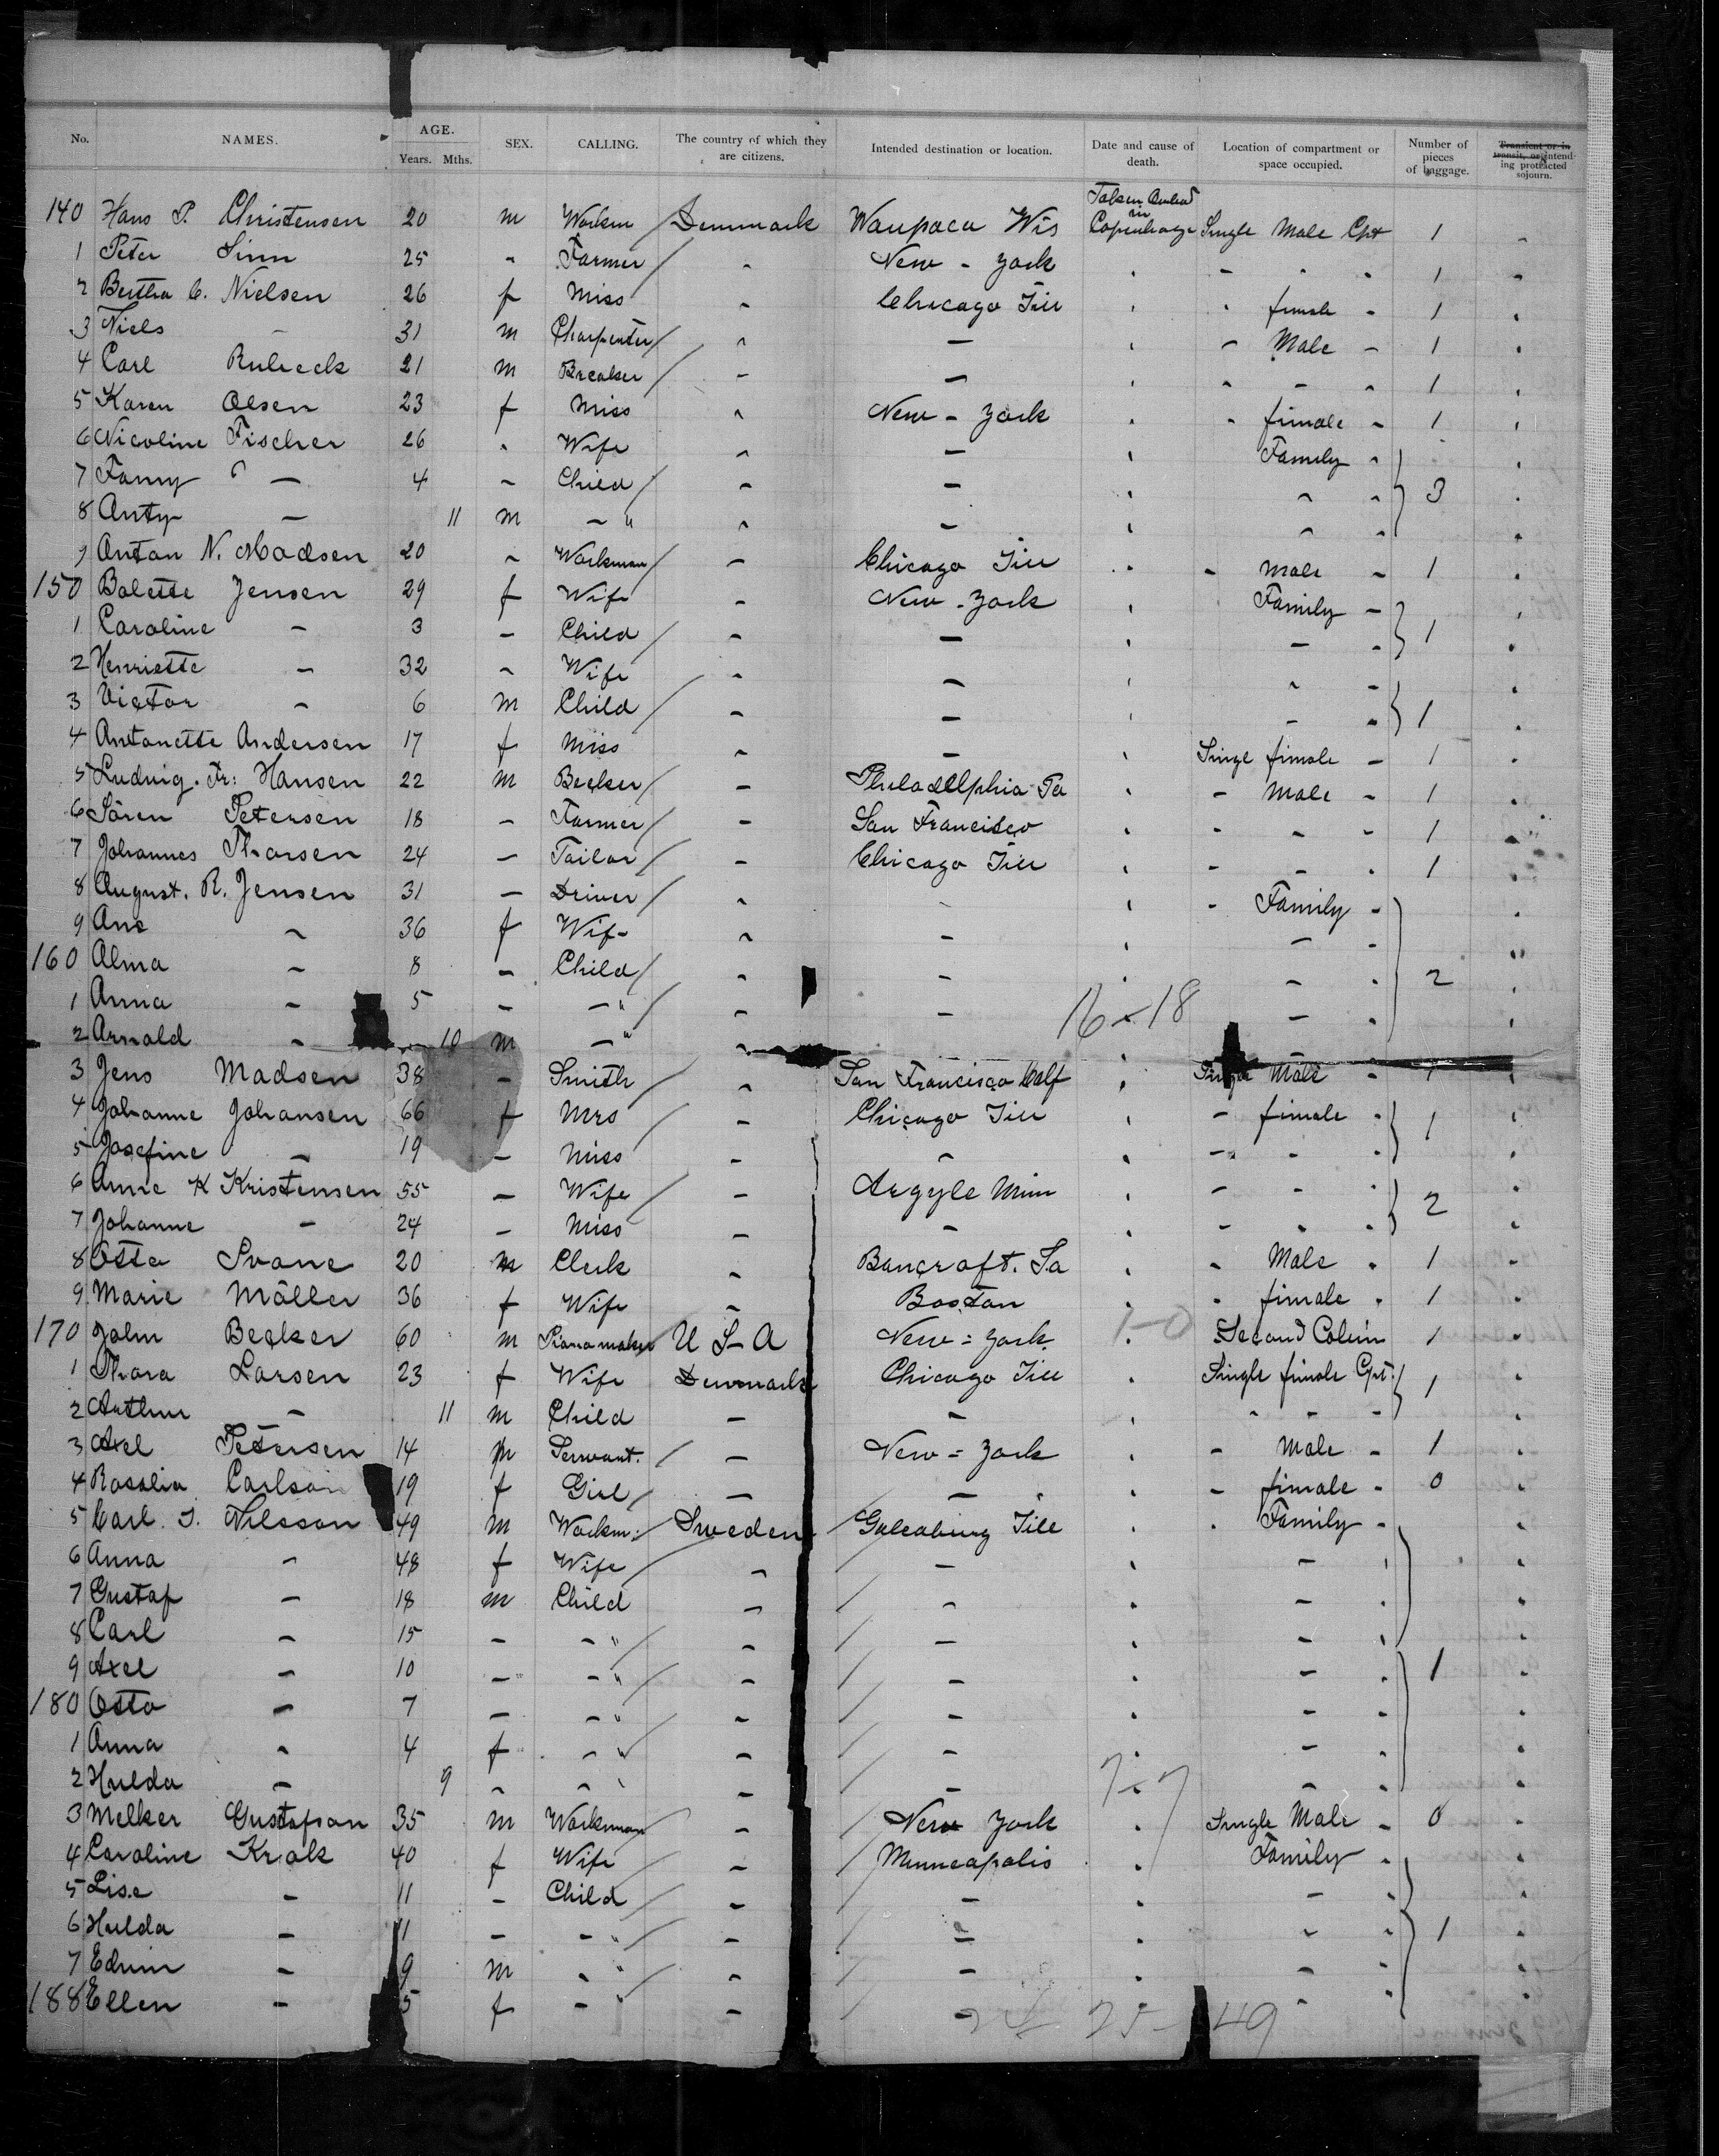 No. NAMES. AGE. Years. Mths. SEX. CALLING. The country of which they are citizens. Intended destination or location. Date and cause of death. Location of compartment or space occupied. Number of pieces of baggage. Transient or in transit, or intending protracted sojourn.
140 Hans P. Christensen 20 m Workm Denmark Waupaca Wis Taken Onboard in Copenhagen Single Male Cpt 1 -
1 Peter Sinn 25 - Farmer - New - York - - - 1 -
2 Bertha C. Nielsen 26 f Miss - Chicago Ill - - female - 1 -
3 Niels - 31 m Charpenter - - - - Male - 1 -
4 Carl Rubeck 21 m Breaker - - - - - - 1 -
5 Karen Olsen 23 f Miss - New - York - - female - 1 -
6 Nicoline Fischer 26 - Wife - - - Family - -
7 Fanny - 4 - Child - - - - - 3 -
8 Anty - 11 m - " - - - - -
9 Anton N. Madsen 20 - Workman - Chicago Ill - - male - 1 -
150 Bolette Jensen 29 f Wife - New - York - Family - -
1 Caroline - 3 - Child - - - - - 1 -
2 Henriette - 32 - Wife - - - - - -
3 Victor - 6 m Child - - - - - 1 -
4 Antonette Andersen 17 f Miss - - - Singl female - 1 -
5 Ludwig. Fr: Hansen 22 m Becker - Philadelphia Pa - - Male - 1 -
6 Sören Petersen 18 - Farmer - San Francisco - - - - 1 -
7 Johannes Thorsen 24 - Tailor - Chicago Ill - - - - 1 -
8 August. R. Jensen 31 - Driver - - - - Family - -
9 Ane - 36 f Wife - - - - - -
160 Alma - 8 - Child - - - - - 2 -
1 Anna - 5 - - " - - 16-18 - - -
2 Arnold - 10 m - " - - -
3 Jens Madsen 38 - Smith - San Francisco Calf - Single Male - 1 -
4 Johanne Johansen 66 f Mrs - Chicago Ill - - female - 1 -
5 Josefine - 19 - Miss - - - - - - -
6 Anne K Kristensen 55 - Wife - Argyle Minn - - - - 2 -
7 Johanne - 24 - Miss - - - - - - -
8 Otto Svane 20 m Clerk - Bancroft. Ia - - Male - 1 -
9 Marie Möller 36 f Wife - Boston - - female - 1 -
170 John Becker 60 m Pianomaker U S A New = York 1-0 Second Cabin 1 -
1 Thora Larsen 23 f Wife Denmark Chicago Ill - Single female Cpt. 1 -
2 Arthur - 11 m Child - - - - - -
3 Axel Petersen 14 m Servant. - New = York - - Male - 1 -
4 Rosalia Carlson 19 f Girl - - - - female - 0 -
5 Carl. J. Nilsson 49 m Workm: Sweden Galesburg Ill - - Family - -
6 Anna - 48 f Wife - - - - - -
7 Gustaf - 18 m Child - - - - - -
8 Carl - 15 - - " - - - - - -
9 Axel - 10 - - " - - - - - 1 -
180 Otto - 7 - - " - - - - - -
1 Anna - 4 f - " - - - - -
2 Hulda - 9 - - " - - 7-7 - -
3 Melker Gustafson 35 m Workman - New York - Single Male - 0 -
4 Caroline Krok 40 f Wife - Minneapolis - Family - -
5 Lise - 11 - Child - - - - - -
6 Hulda - 11 - - " - - - - - 1 -
7 Edwin - 9 m - " - - - - - -
188 Ellen - 5 f - " - - - -
25-49